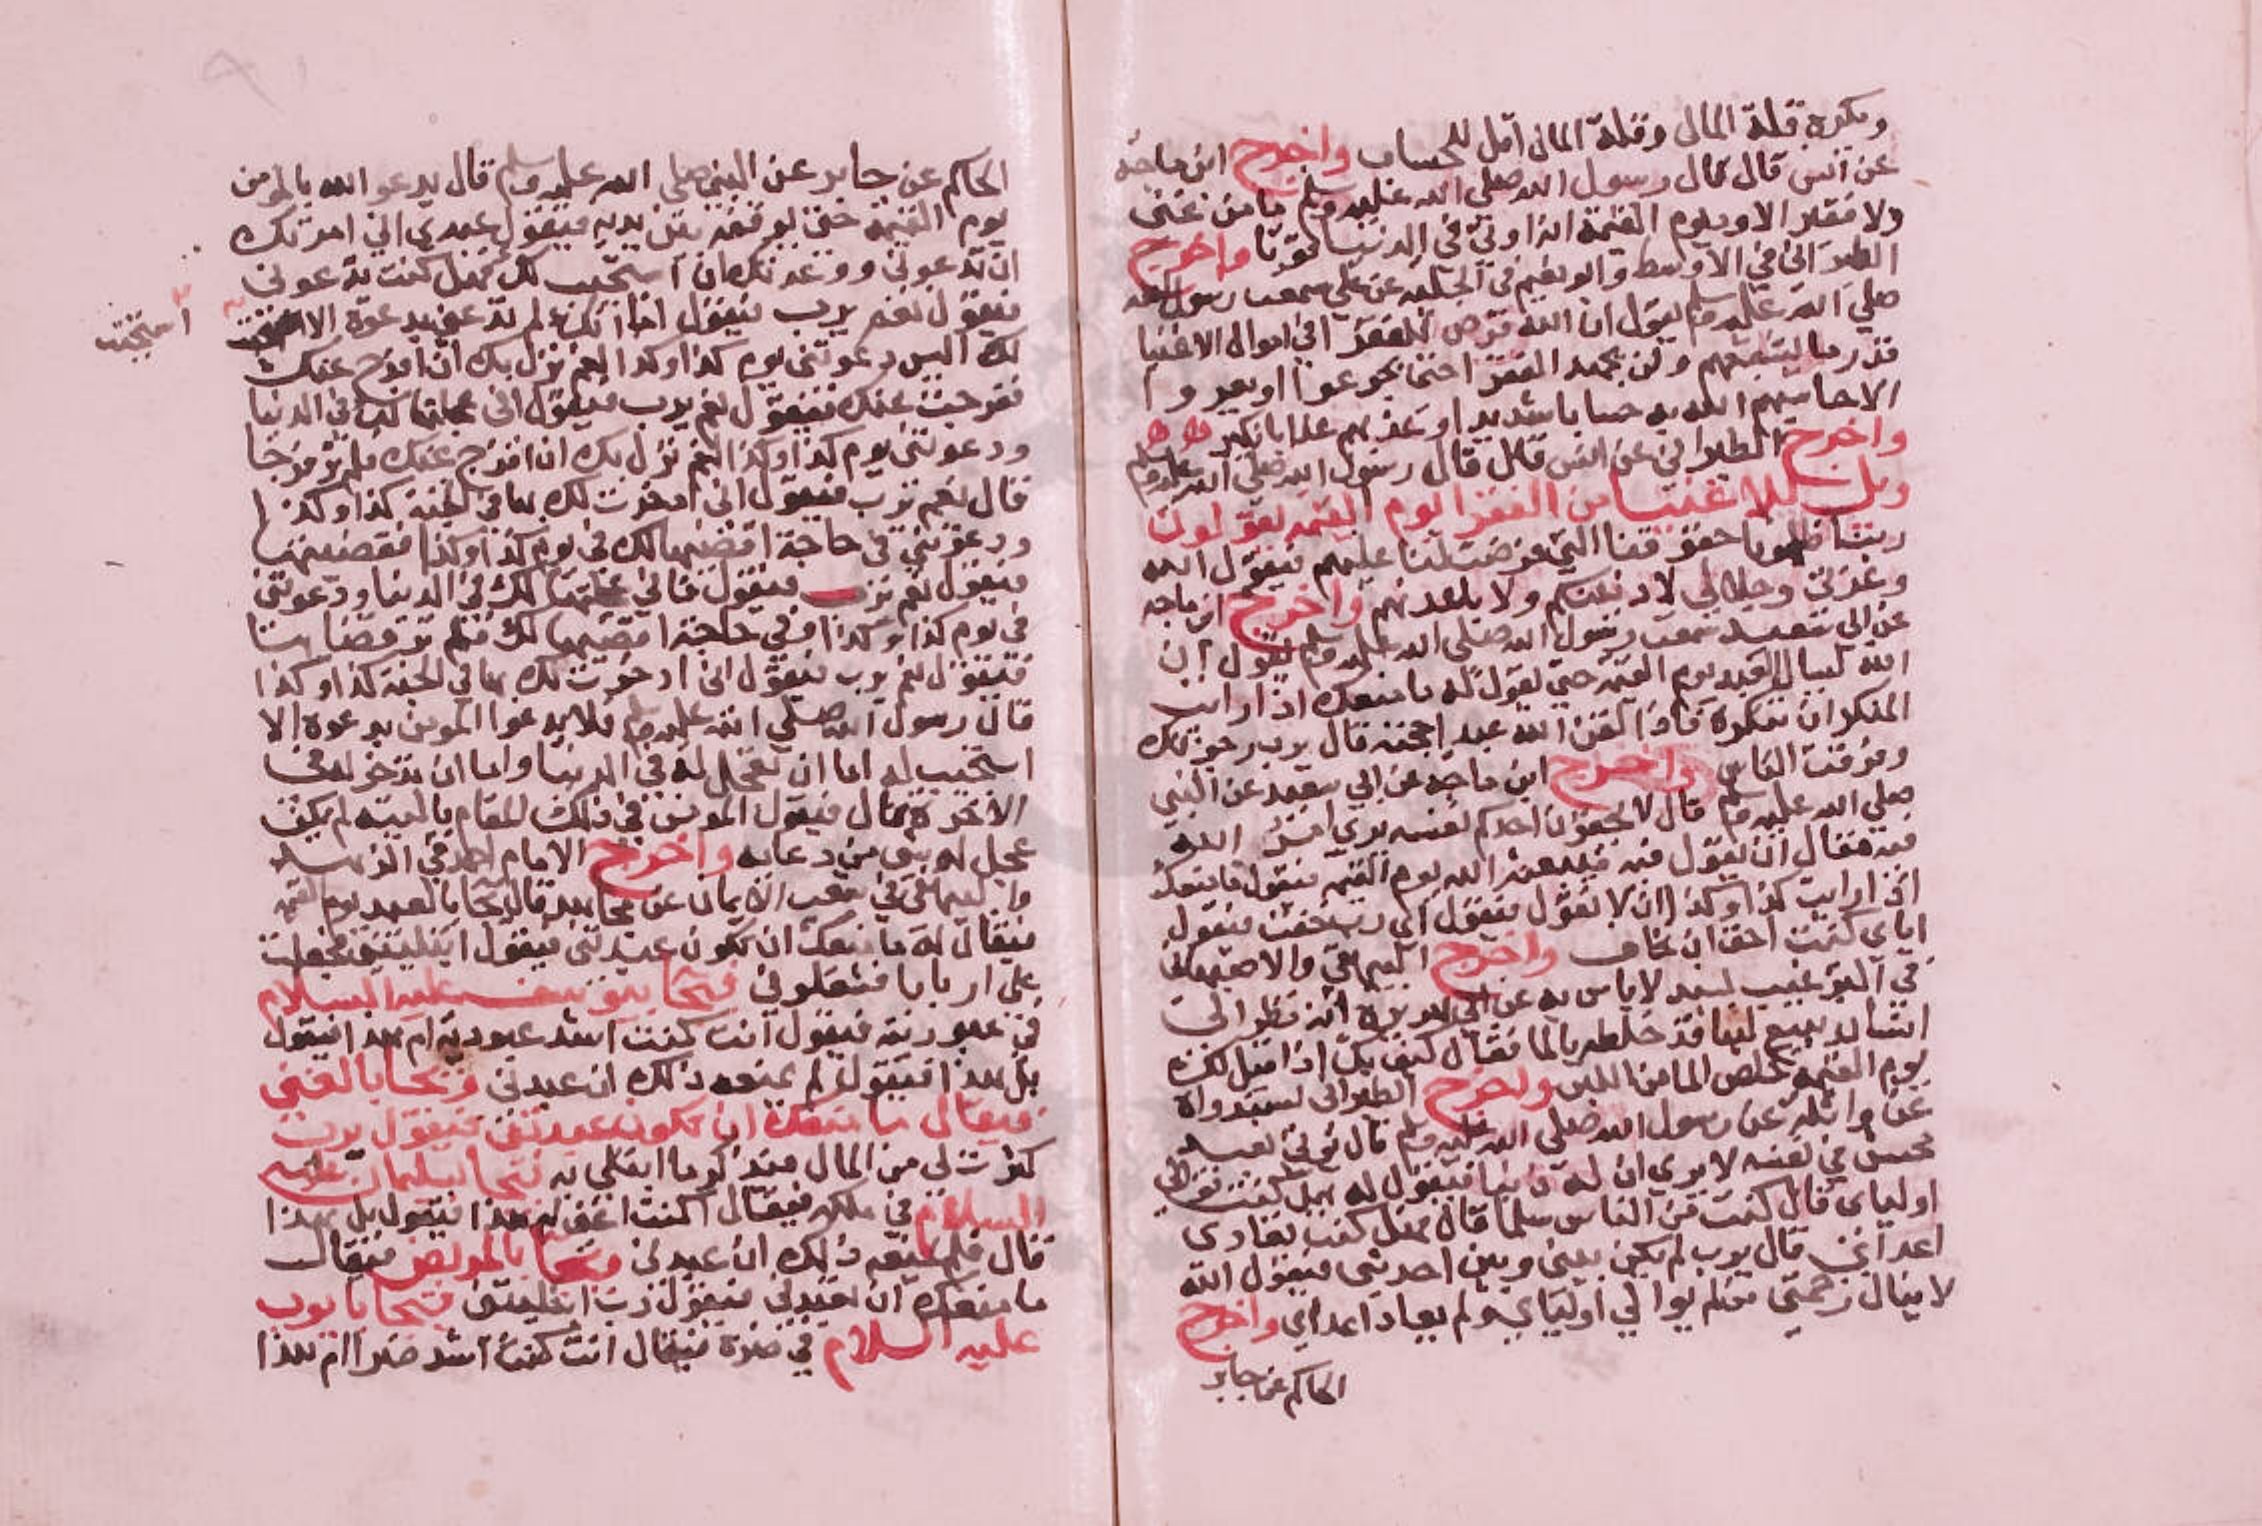 ويكره قلة المال وقلة المال اقل للحساب واخرج ابن ماجه
عن انس قال قال رسول الله صلى الله عليه وسلم ما من غنى
ولا فقير الا ود يوم القيمة انه اوتى في الدنيا قوتا واخرج
الطبرانى في الاوسط وابو نعيم في الحلية عن علي سمعت رسول الله
صلي الله عليه وسلم يقول ان الله فرض للفقرا في اموال الاغنيا
قدر ما يسعهم ولن يجهد الفقرا حتى يجوعوا او يعروا
الا حاسبهم الله به حسابا شديدا وعذبهم عذابا نكيرا
واخرج الطبراني عن انس قال قال رسول الله صلى الله عليه وسلم
ويل للاغنيا من الفقرا يوم القيمه يقولون
ربنا ظلمونا حقوقنا التي فرضت لنا عليهم فيقول الله
وعزتي وجلالي لادنينكم ولابعدنهم واخرج ابن ماجه
عن ابي سعيد سمعت رسول الله صلى الله عليه وسلم يقول ان
الله ليسال العبد يوم القيمه حتى يقول له ما منعك اذ رايت
المنكر ان تنكره فاذا لقن الله عبدا حجته قال يرب رجوتك
وفرقت الناس واخرج ابن ماجه عن ابي سعيد عن النبي
صلي الله عليه وسلم قال لا يحقرن احدكم نفسه يرى امر الله
فيه فقال ان يقول فيه فيبعثه الله يوم القيمه فيقول ما منعك
اذ رايت كذا وكذا ان لا تقول فيقول اي رب خفت فيقول
اياي كنت احق ان تخاف واخرج البيهقي والاصبهاني
في الترغيب لسند لا باس به عن ابي هريرة انه نظر الى
انسان يبيع لبنا قد خلطه بالما فقال كيف بك اذا قيل لك
يوم القيمة خلص الما من اللبن واخرج الطبرانى لسند واه
عن واثلة عن رسول الله صلى الله عليه وسلم قال يوتى بعبد
محسن في نفسه لا يري ان له ذنبا فيقول له هل كنت توالي
اولياي قال كنت من الناس سلما قال فهل كنت تعادى
اعدائي قال يرب لم يكن بيني وبين احد شي فيقول الله
لا ينال رحمتي من لم يوالي اولياي ولم يعاد اعداي واخرج
الحاكم عن جابر
الحاكم عن جابر عن النبي صلى الله عليه وسلم قال يدعو الله بالمومن
يوم القيمة حتى يوقفه بين يديه فيقول عبدي اني امرتك
ان تدعوني ووعدتك ان استجيب لك فهل كنت تدعوني
فيقول نعم يرب فيقول اما انك لم تدعني بدعوة الا
استجبت
لك اليس دعوتني يوم كذا وكذا لغم نزل بك ان افرج عنك
ففرجت عنك فيقول نعم يرب فيقول اني عجلتها لك في الدنيا
ودعوتني يوم كذا وكذا لغم نزل بك ان افرج عنك فلم تر فرجا
قال نعم يرب فيقول اني ادخرت لك بها في الجنة كذا وكذا
ودعوتني في حاجة اقضيها لك في يوم كذا وكذا فقضيتها
فيقول نعم يرب فيقول فاني عجلتها لك في الدنيا ودعوتني
في يوم كذا وكذا في حاجة اقضيها لك فلم تر قضاها
فيقول نعم يرب فيقول اني ادخرت لك بها في الجنة كذا وكذا
قال رسول الله صلي الله عليه وسلم فلا يدعوا المومن بدعوة الا
استجيب له اما ان تعجل له في الدنيا واما ان يدخر له في
الاخرة قال فيقول المومن في ذلك المقام ياليته لم يكن
عجل له شي من دعايه واخرج الامام احمد في الزهد
والبيهقي في شعب الايمان عن مجاهد قال يجا بالعبد يوم القيمه
فيقال له ما منعك ان تكون عبدتني فيقول ابتليتني فجعلت
علي اربابا فشغلوني فيجا بيوسف عليه السلام
في عبوديته فيقول انت كنت اشد عبودية ام هذا فيقول
بل هذا فيقول لم يمنعه ذلك ان عبدني ويجا بالغني
فيقال ما منعك ان تكون عبدتني فيقول يرب
كثرت لي من المال فيذكر ما ابتلي به فيجا بسليمان عليه
السلام في ملكه فيقال اكنت اغنى ام هذا فيقول بل هذا
قال فلم يمنعه ذلك ان عبدني ويجا بالمريض فيقال
ما منعك ان تعبدني فيقول رب ابتليتني فيجا بايوب
عليه السلام في ضره فيقال انت كنت اشد ضرا ام هذا